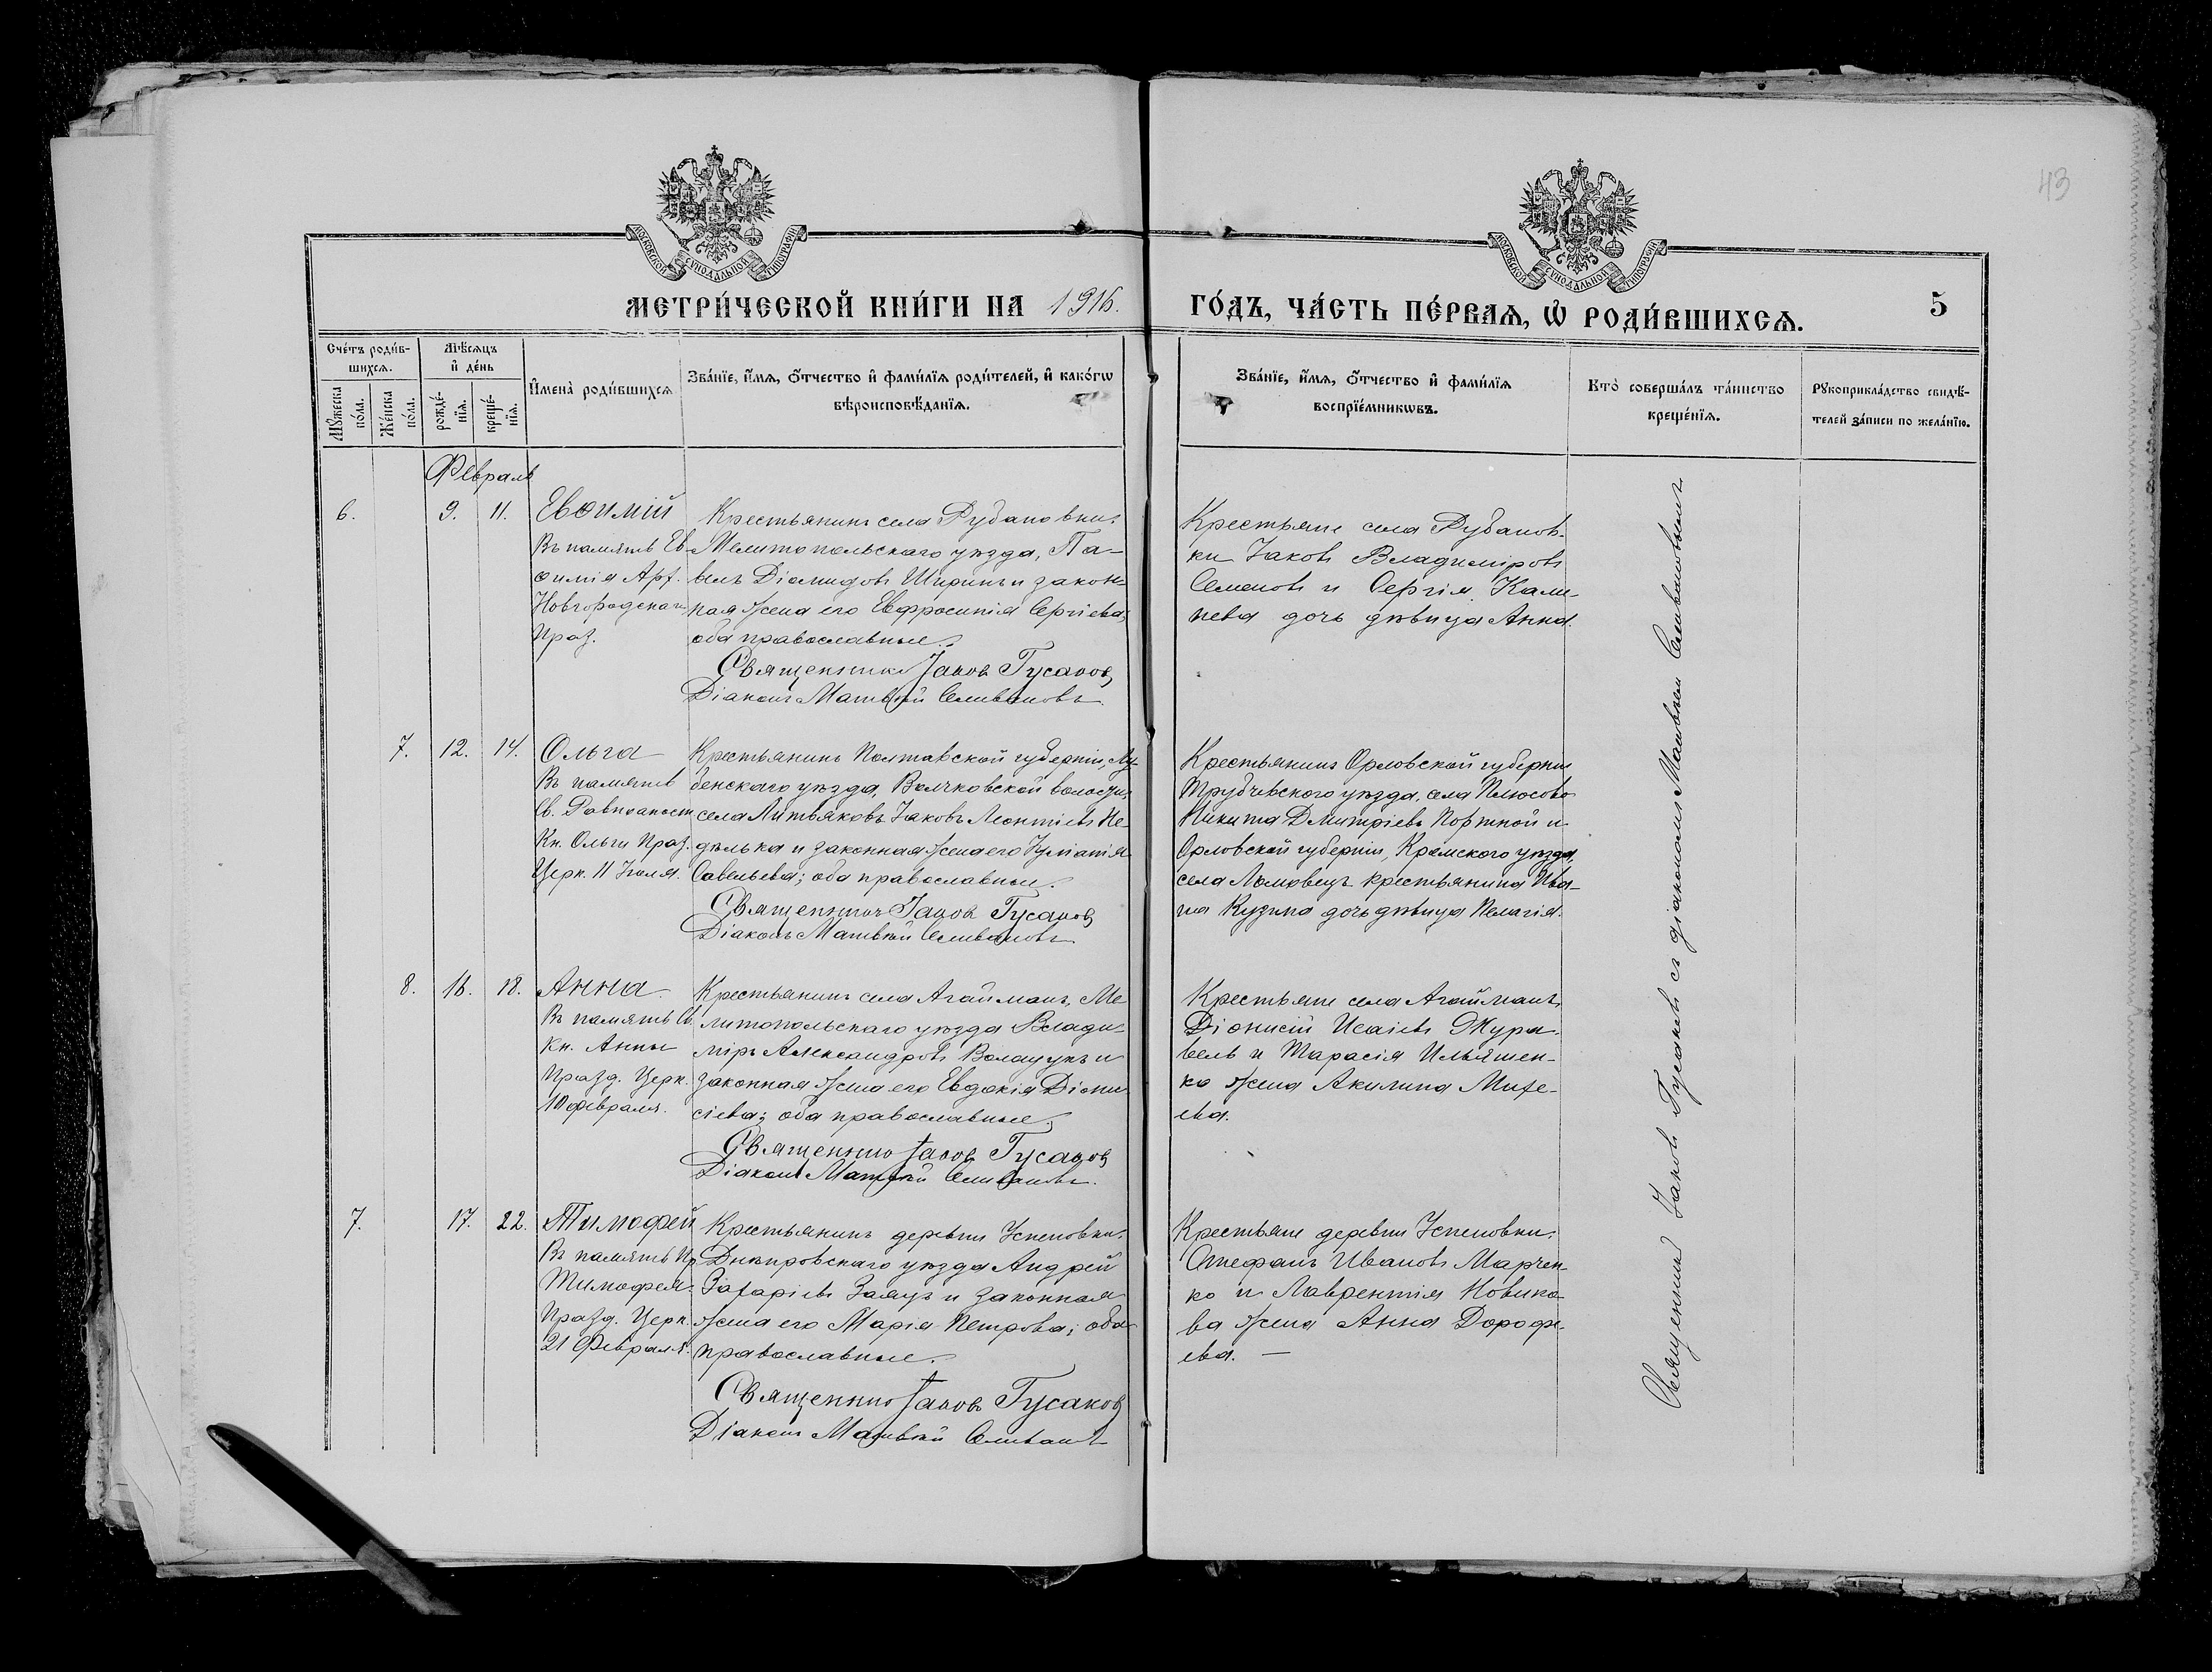 43
МОСКОВСКОЙ СѴНОДАЛЬНОЙ ТИПОГРАФІИ
МОСКОВСКОЙ СѴНОДАЛЬНОЙ ТИПОГРАФІИ
МЕТРИ́ЧЕСКОЙ КНИ́ГИ НА 1916. ГО́ДЪ, ЧА́СТЬ ПЕ́РВАѦ, Ѽ РОДИ́ВШИХСѦ. 5
Сче́тъ роди́в-
шихсѧ.
Мꙋжеска по́ла.
Же́нска по́ла.
Мѣ́сѧцъ
и҆ де́нь
рожде́-
нїѧ.
креще́-
нїѧ.
И҆мена̀ роди́вшихсѧ
Зва́нїе, и҆́мѧ, ѻ҆́тчество и҆ фами́лїѧ роди́телей, и҆ како́гѡ
вѣроисповѣ́данїѧ.
Зва́нїе, и҆́мѧ, ѻ҆́тчество и҆ фами́лїѧ
воспрїе́мникѡвъ.
Кто̀ соверша́лъ та́инство
креще́нїѧ.
Рꙋкоприкла́дство свидѣ́-
телей за́писи по жела́нїю.
Февраль
6. 9. 11. Евѳимій
Въ память Ев-
ѳимія Арх.
Новгородскаго
Праз.
Крестьянинъ села Рубановки,
Мелитопольскаго уѣзда, Па-
велъ Діомидовъ Ширинъ и закон-
ная жена его Евфросинія Сергіева;
оба православные.
Священникъ Іаковъ Гусаковъ
Діаконъ Матвѣй Селивановъ
Крестьяне села Рубанов-
ки Іаковъ Владиміровъ
Семеновъ и Сергія Кали-
нева дочь дѣвица Анна.
7. 12. 14. Ольга
Въ память
Св. Равноапост.
Кн. Ольги Праз.
Церк. 11 Іюля.
Крестьянинъ Полтавской губерніи, Лу-
бенскаго уѣзда, Волчковской волости,
села Литвяковъ Іаковъ Леонтіевъ Не-
дѣлька и законная жена его Іуліанія
Савельева; оба православные.
Священникъ Іаковъ Гусаковъ
Діаконъ Матвѣй Селивановъ
Крестьянинъ Орловской губерніи
Трубчевскаго уѣзда, села Плюсково
Никита Дмитріевъ Портной и
Орловской губерніи, Кромского уѣзда,
села Ломовецъ крестьянина Ива-
на Кузина дочь дѣвица Пелагія.
8. 16. 18. Анна
Въ память Св.
Кн. Анны
Празд. Церк.
10 февраля.
Крестьянинъ села Агайманъ, Ме-
литопольскаго уѣзда Влади-
міръ Александровъ Волацукъ и
законная жена его Евдокія Діони-
сіева; оба православные.
Священникъ Іаковъ Гусаковъ
Діаконъ Матвѣй Селивановъ
Крестьяне села Агайманъ,
Діонисій Исаіевъ Жура-
вель и Тарасія Ильяшен-
ко жена Акилина Михе-
ева.
7. 17. 22. Тимофей
Въ память Пр.
Тимофея.
Празд. Церк.
21 Февраля.
Крестьянинъ деревни Успеновки,
Днѣпровскаго уѣзда Андрей
Захаріевъ Заяцъ и законная
жена его Марія Петрова; оба
православные.
Священникъ Іаковъ Гусаковъ
Діаконъ Матвѣй Селивановъ
Крестьяне деревни Успеновки,
Стефанъ Ивановъ Марчен-
ко и Лаврентія Новико-
ва жена Анна Дорофе-
ева. —
Священникъ Іаковъ Гусаковъ съ діакономъ Матвѣемъ Селивановымъ